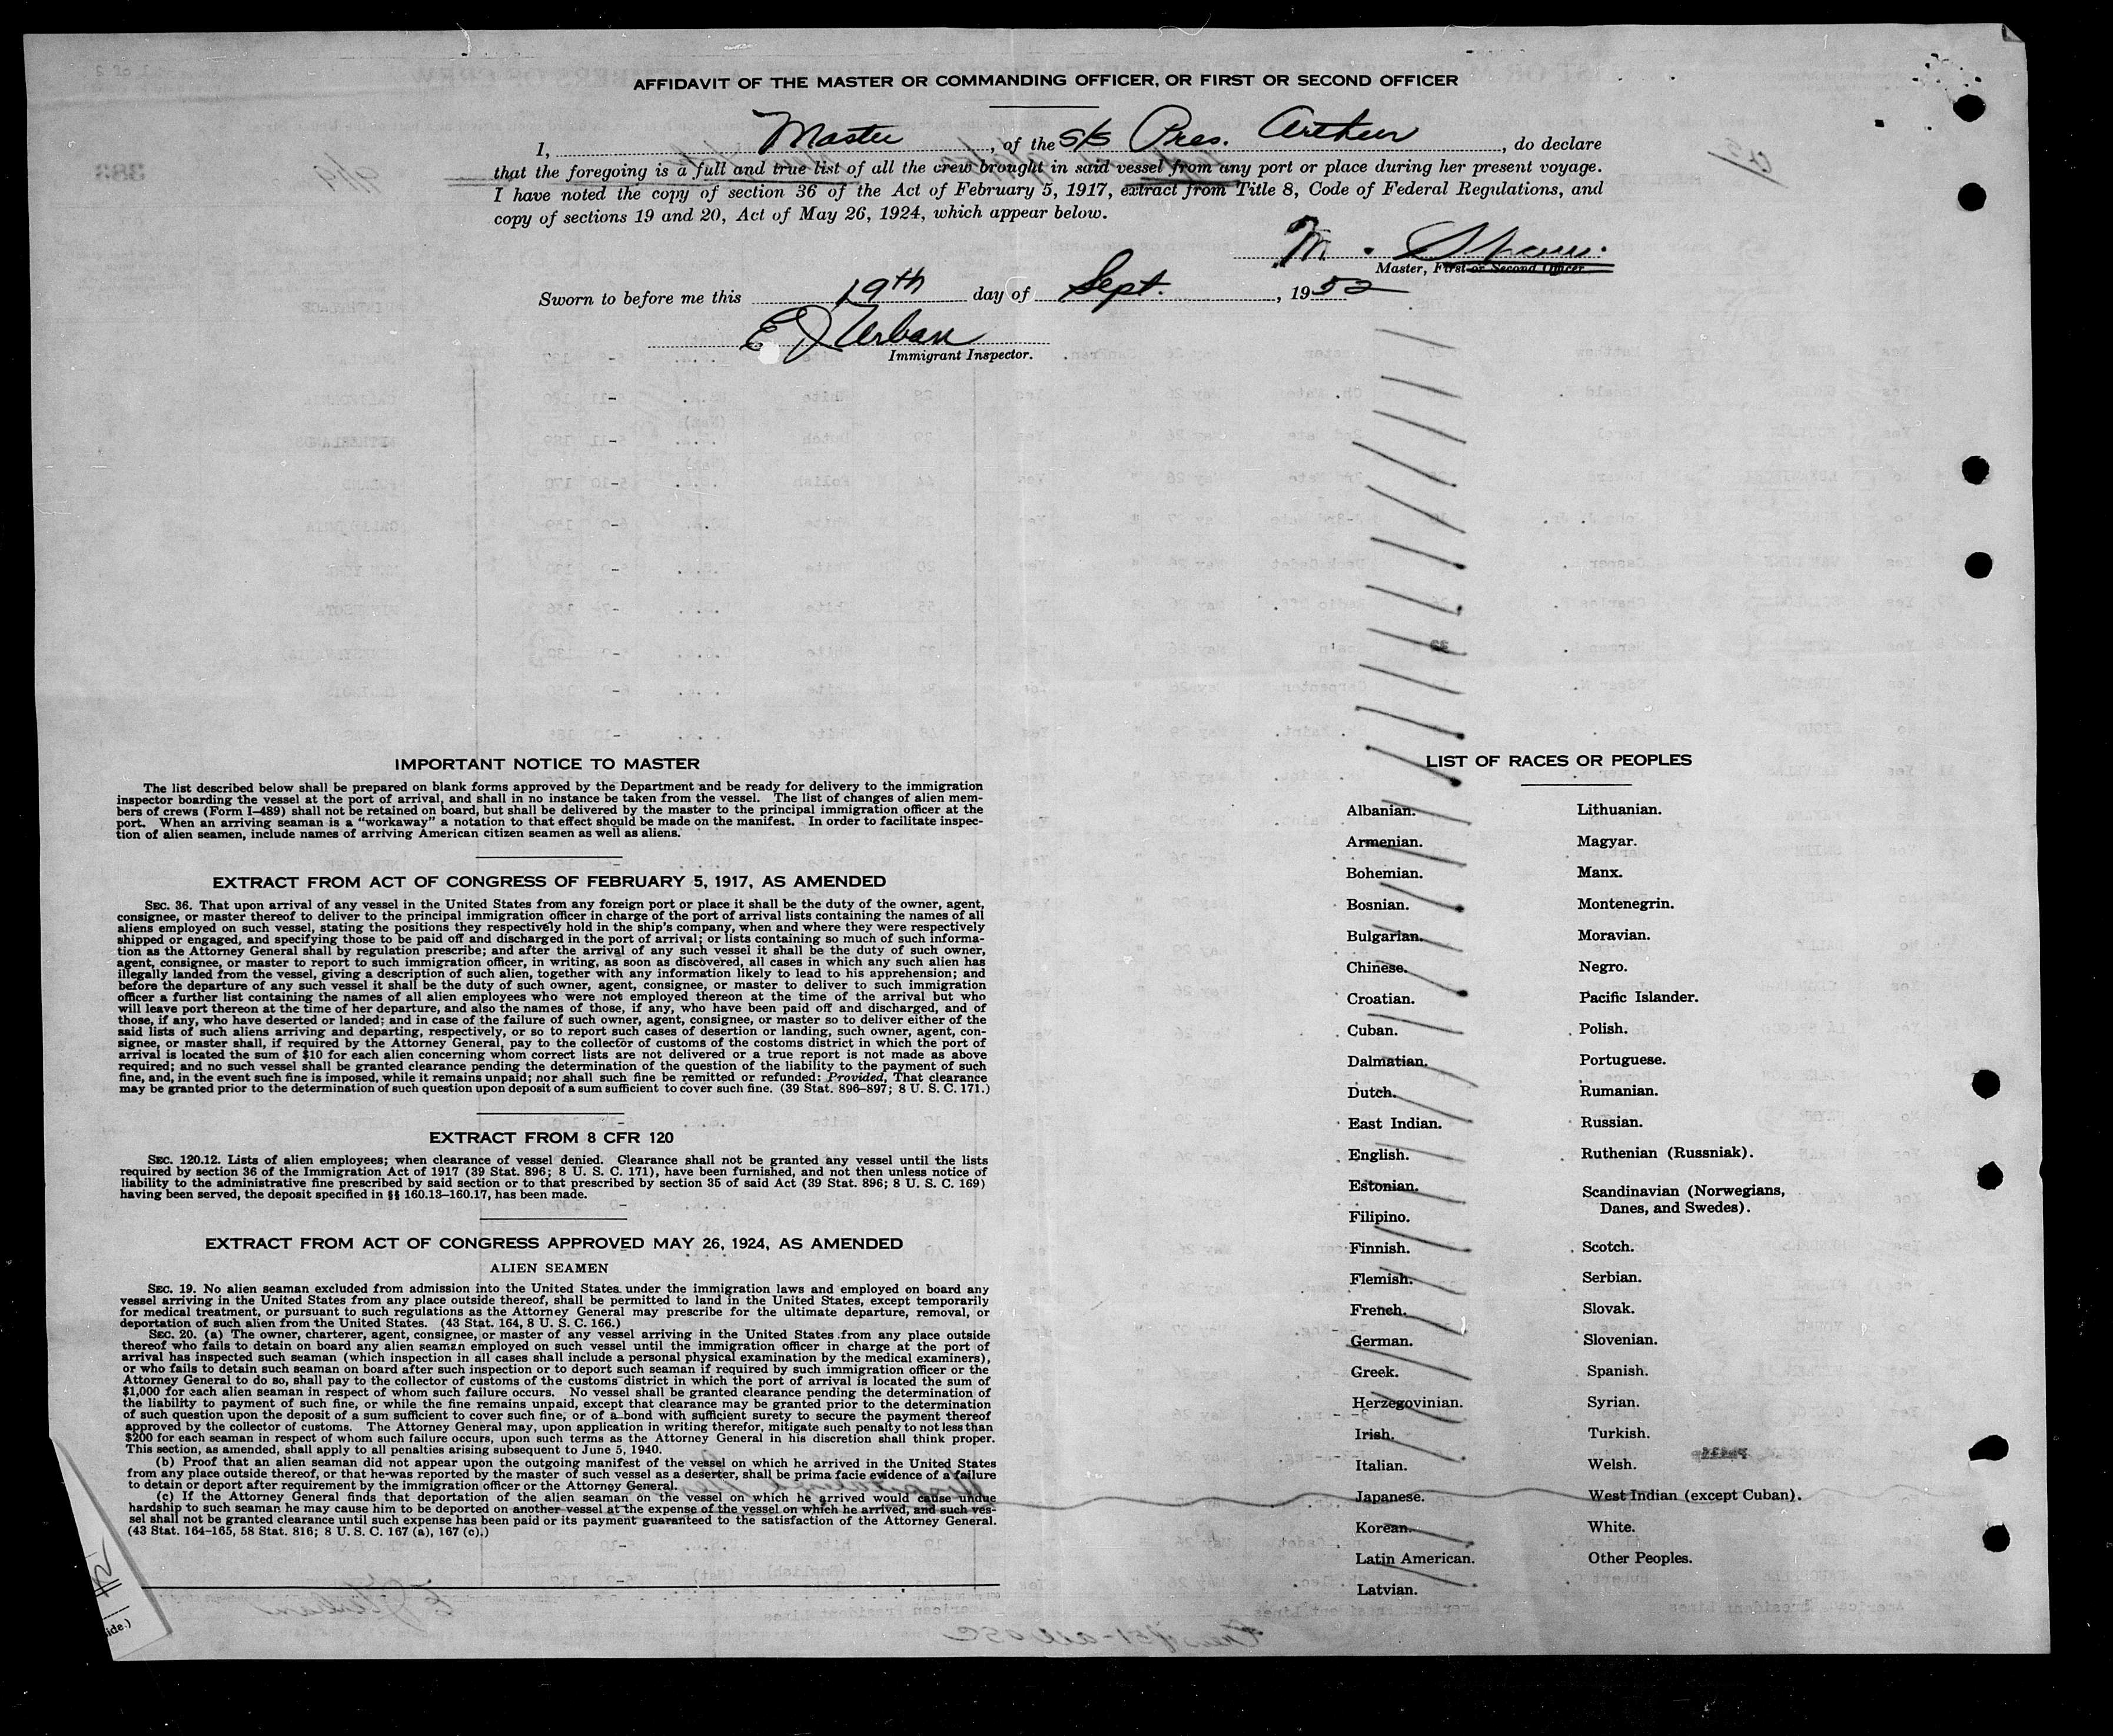 AFFIDAVIT OF THE MASTER OR COMMANDING OFFICER, OR FIRST OR SECOND OFFICER
I, Master, of the S/S Pres. Arthur, do declare
that the foregoing is a full and true list of all the crew brought in said vessel from any port or place during her present voyage.
I have noted the copy of section 36 of the Act of February 5, 1917, extract from Title 8, Code of Federal Regulations, and
copy of sections 19 and 20, Act of May 26, 1924, which appear below.
M.
Master, First or Second Officer
Sworn to before me this 19th day of Sept., 1952
E J Urban
Immigrant Inspector.
IMPORTANT NOTICE TO MASTER
The list described below shall be prepared on blank forms approved by the Department and be ready for delivery to the immigration
inspector boarding the vessel at the port of arrival, and shall in no instance be taken from the vessel. The list of changes of alien mem-
bers of crews (Form I-489) shall not be retained on board, but shall be delivered by the master to the principal immigration officer at the
port. When an arriving seaman is a "workaway" a notation to that effect should be made on the manifest. In order to facilitate inspec-
tion of alien seamen, include names of arriving American citizen seamen as well as aliens.
EXTRACT FROM ACT OF CONGRESS OF FEBRUARY 5, 1917, AS AMENDED
SEC. 36. That upon arrival of any vessel in the United States from any foreign port or place it shall be the duty of the owner, agent,
consignee, or master thereof to deliver to the principal immigration officer in charge of the port of arrival lists containing the names of all
aliens employed on such vessel, stating the positions they respectively hold in the ship's company, when and where they were respectively
shipped or engaged, and specifying those to be paid off and discharged in the port of arrival; or lists containing so much of such informa-
tion as the Attorney General shall by regulation prescribe; and after the arrival of any such vessel it shall be the duty of such owner,
agent, consignee, or master to report to such immigration officer, in writing, as soon as discovered, all cases in which any such alien has
illegally landed from the vessel, giving a description of such alien, together with any information likely to lead to his apprehension; and
before the departure of any such vessel it shall be the duty of such owner, agent, consignee, or master to deliver to such immigration
officer a further list containing the names of all alien employees who were not employed thereon at the time of the arrival but who
will leave port thereon at the time of her departure, and also the names of those, if any, who have been paid off and discharged, and of
those, if any, who have deserted or landed; and in case of the failure of such owner, agent, consignee, or master so to deliver either of the
said lists of such aliens arriving and departing, respectively, or so to report such cases of desertion or landing, such owner, agent, con-
signee, or master shall, if required by the Attorney General, pay to the collector of customs of the costoms district in which the port of
arrival is located the sum of $10 for each alien concerning whom correct lists are not delivered or a true report is not made as above
required; and no such vessel shall be granted clearance pending the determination of the question of the liability to the payment of such
fine, and, in the event such fine is imposed, while it remains unpaid; nor shall such fine be remitted or refunded: Provided, That clearance
may be granted prior to the determination of such question upon deposit of a sum sufficient to cover such fine. (39 Stat. 896–897; 8 U. S. C. 171.)
EXTRACT FROM 8 CFR 120
SEC. 120.12. Lists of alien employees; when clearance of vessel denied. Clearance shall not be granted any vessel until the lists
required by section 36 of the Immigration Act of 1917 (39 Stat. 896; 8 U. S. C. 171), have been furnished, and not then unless notice of
liability to the administrative fine prescribed by said section or to that prescribed by section 35 of said Act (39 Stat. 896; 8 U. S. C. 169)
having been served, the deposit specified in §§ 160.13–160.17, has been made.
EXTRACT FROM ACT OF CONGRESS APPROVED MAY 26, 1924, AS AMENDED
ALIEN SEAMEN
SEC. 19. No alien seaman excluded from admission into the United States under the immigration laws and employed on board any
vessel arriving in the United States from any place outside thereof, shall be permitted to land in the United States, except temporarily
for medical treatment, or pursuant to such regulations as the Attorney General may prescribe for the ultimate departure, removal, or
deportation of such alien from the United States. (43 Stat. 164, 8 U. S. C. 166.)
SEC. 20. (a) The owner, charterer, agent, consignee, or master of any vessel arriving in the United States from any place outside
thereof who fails to detain on board any alien seaman employed on such vessel until the immigration officer in charge at the port of
arrival has inspected such seaman (which inspection in all cases shall include a personal physical examination by the medical examiners),
or who fails to detain such seaman on board after such inspection or to deport such seaman if required by such immigration officer or the
Attorney General to do so, shall pay to the collector of customs of the customs district in which the port of arrival is located the sum of
$1,000 for each alien seaman in respect of whom such failure occurs. No vessel shall be granted clearance pending the determination of
the liability to payment of such fine, or while the fine remains unpaid, except that clearance may be granted prior to the determination
of such question upon the deposit of a sum sufficient to cover such fine, or of a bond with sufficient surety to secure the payment thereof
approved by the collector of customs. The Attorney General may, upon application in writing therefor, mitigate such penalty to not less than
$200 for each seaman in respect of whom such failure occurs, upon such terms as the Attorney General in his discretion shall think proper.
This section, as amended, shall apply to all penalties arising subsequent to June 5, 1940.
(b) Proof that an alien seaman did not appear upon the outgoing manifest of the vessel on which he arrived in the United States
from any place outside thereof, or that he was reported by the master of such vessel as a deserter, shall be prima facie evidence of a failure
to detain or deport after requirement by the immigration officer or the Attorney General.
(c) If the Attorney General finds that deportation of the alien seaman on the vessel on which he arrived would cause undue
hardship to such seaman he may cause him to be deported on another vessel at the expense of the vessel on which he arrived, and such ves-
sel shall not be granted clearance until such expense has been paid or its payment guaranteed to the satisfaction of the Attorney General.
(43 Stat. 164–165, 58 Stat. 816; 8 U. S. C. 167 (a), 167 (c).)
LIST OF RACES OR PEOPLES
Albanian.
Armenian.
Bohemian.
Bosnian.
Bulgarian.
Chinese.
Croatian.
Cuban.
Dalmatian.
Dutch.
East Indian.
English.
Estonian.
Filipino.
Finnish.
Flemish.
French.
German.
Greek.
Herzegovinian.
Irish.
Italian.
Japanese.
Korean.
Latin American.
Latvian.
Lithuanian.
Magyar.
Manx.
Montenegrin.
Moravian.
Negro.
Pacific Islander.
Polish.
Portuguese.
Rumanian.
Russian.
Ruthenian (Russniak).
Scandinavian (Norwegians,
Danes, and Swedes).
Scotch.
Serbian.
Slovak.
Slovenian.
Spanish.
Syrian.
Turkish.
Welsh.
West Indian (except Cuban).
White.
Other Peoples.
ide.)